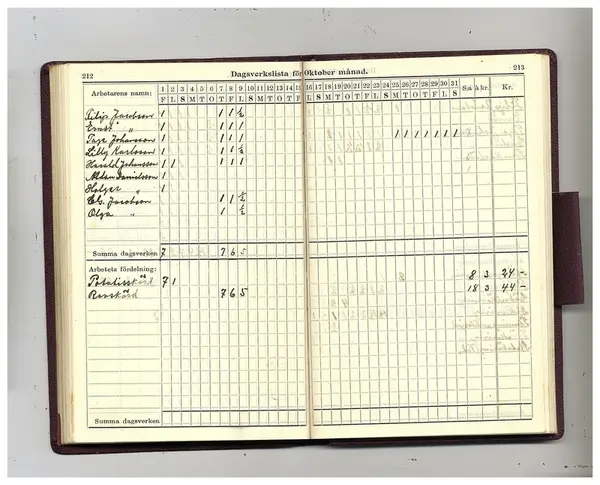 212 Dagsverkslista för Oktober månad. 213
Arbetarens namn: 1 2 3 4 5 6 7 8 9 10 11 12 13 14 15 16 17 18 19 20 21 22 23 24 25 26 27 28 29 30 31 S:a å kr. Kr.
F L S M T O T F L S M T O T F L S M T O T F L S M T O T F L S
Filip Jacobsson 1 1 1 ½
Ernst " 1 1 1 1
Tage Johansson 1 1 1 1 1 1 1 1 1 1 1
Lilly Karlsson 1 1 1 1
Harald Johansson 1 1 1 1 1
Danielsson 1
Holger " 1
Jacobson 1 1 ½
Olga " 1 ½
Summa dagsverken 7 7 6 5
Arbetets fördelning:
Potatisskörd 7 1 8 3 24 -
Rovskörd 7 6 5 18 3 44 -
Summa dagsverken